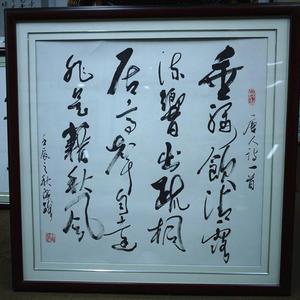 唐人诗一首
垂緌飲清露
流響出疏桐
居高聲自遠
非是藉秋風
壬辰之秋